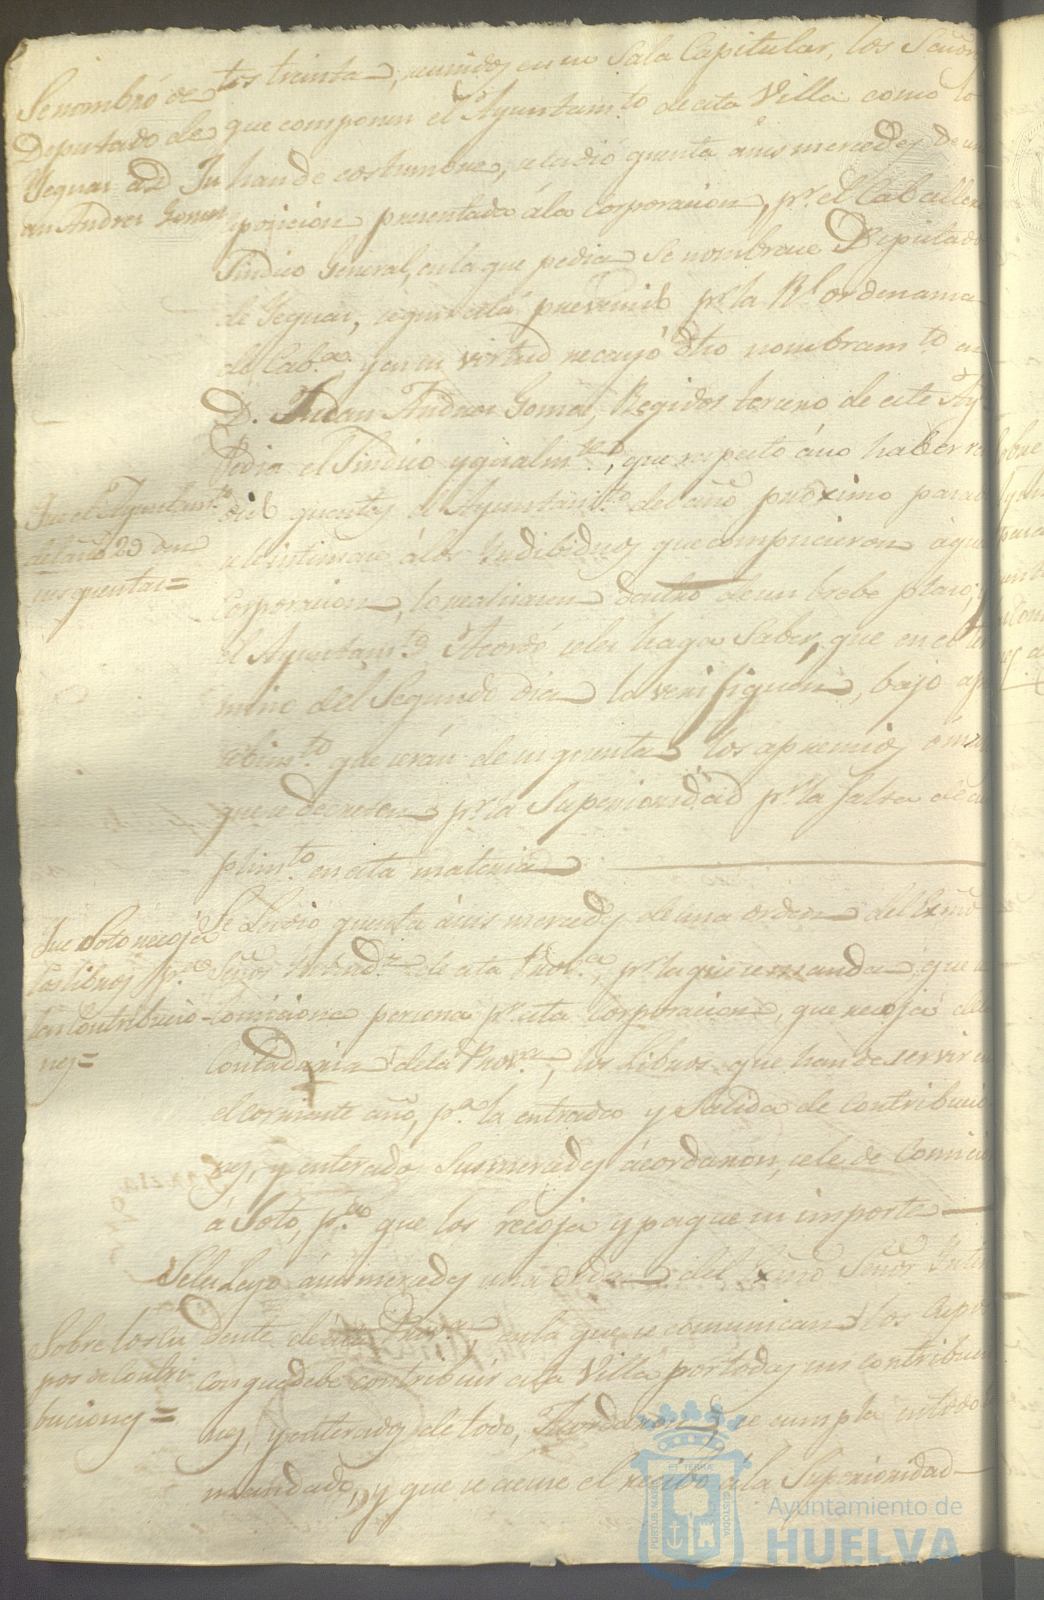 Se nombró de
Deputado de
Yeguas a D. Ju
an Andres Gomez
tos treinta, reunidos en su Sala Capitular, los Señor
que componen el Ayuntam.to de esta Villa como lo
han de costumbre, se ledió quenta á sus mercedes de un
posicion presentada á la corporacion, p.r el Caballero
Sindico General, en la que pedia se nombrase Diputado
de Yeguas, segun está prevenido p.r la R.l ordenanza
de Cab.a y en su virtud recayó dho nombram.to en
D. Juan Andres Gomez, Regidor tercero de este Ay.
Que el Ayuntam.to
del año 29 den
sus quentas=
Pedia el Sindico ygualm.te, que respecto á no haber ren
dido quentas el Ayuntam.to del año proximo pasado
se le intimase á los Yndibiduos que compusieron aque
corporacion, lo realizasen dentro de un brebe plazo, y
el Ayuntam.to Acordó se les haga Saber, que en el ter
mino del Segundo dia lo verifiquen, bajo ap
cibim.to que serán de su quenta los apremios
que se decreten p.r la Superioridad p.r la falta de cu
plim.to en esta materia
Que Soto recoja
los libros p.a
las Contribucio
nes=
Se ledio quenta á sus mercedes de una orden del Exmo
Señor Yntend.te de esta Prov.a, p.r la que se manda que se
comicione persona p.r esta Corporacion, que recoja de la
Contaduria de la Prov.a, los Libros que han de servir en
el corriente año, p.a la entrada y Salida de contribucio
nes, y enterados Sus mercedes acordaron, se le de Comicio
á Soto, p.a que los recoja y pague su importe
Sobre los cu
pos de Contri
buciones=
Se le leyo á sus mercedes una orden del Exmo Señor Yntend
dente de esta Prov.a, en la que se comunican los cupos
con que debe contribuir esta Villa por todas sus contribucio
nes, y enterados de todo, Acordaron, Que se cumpla en todo lo
mandado, y que se acuse el recibo á la Superioridad
PORTUS MARIS ET TERRAE CUSTODIA
Ayuntamiento de
HUELVA